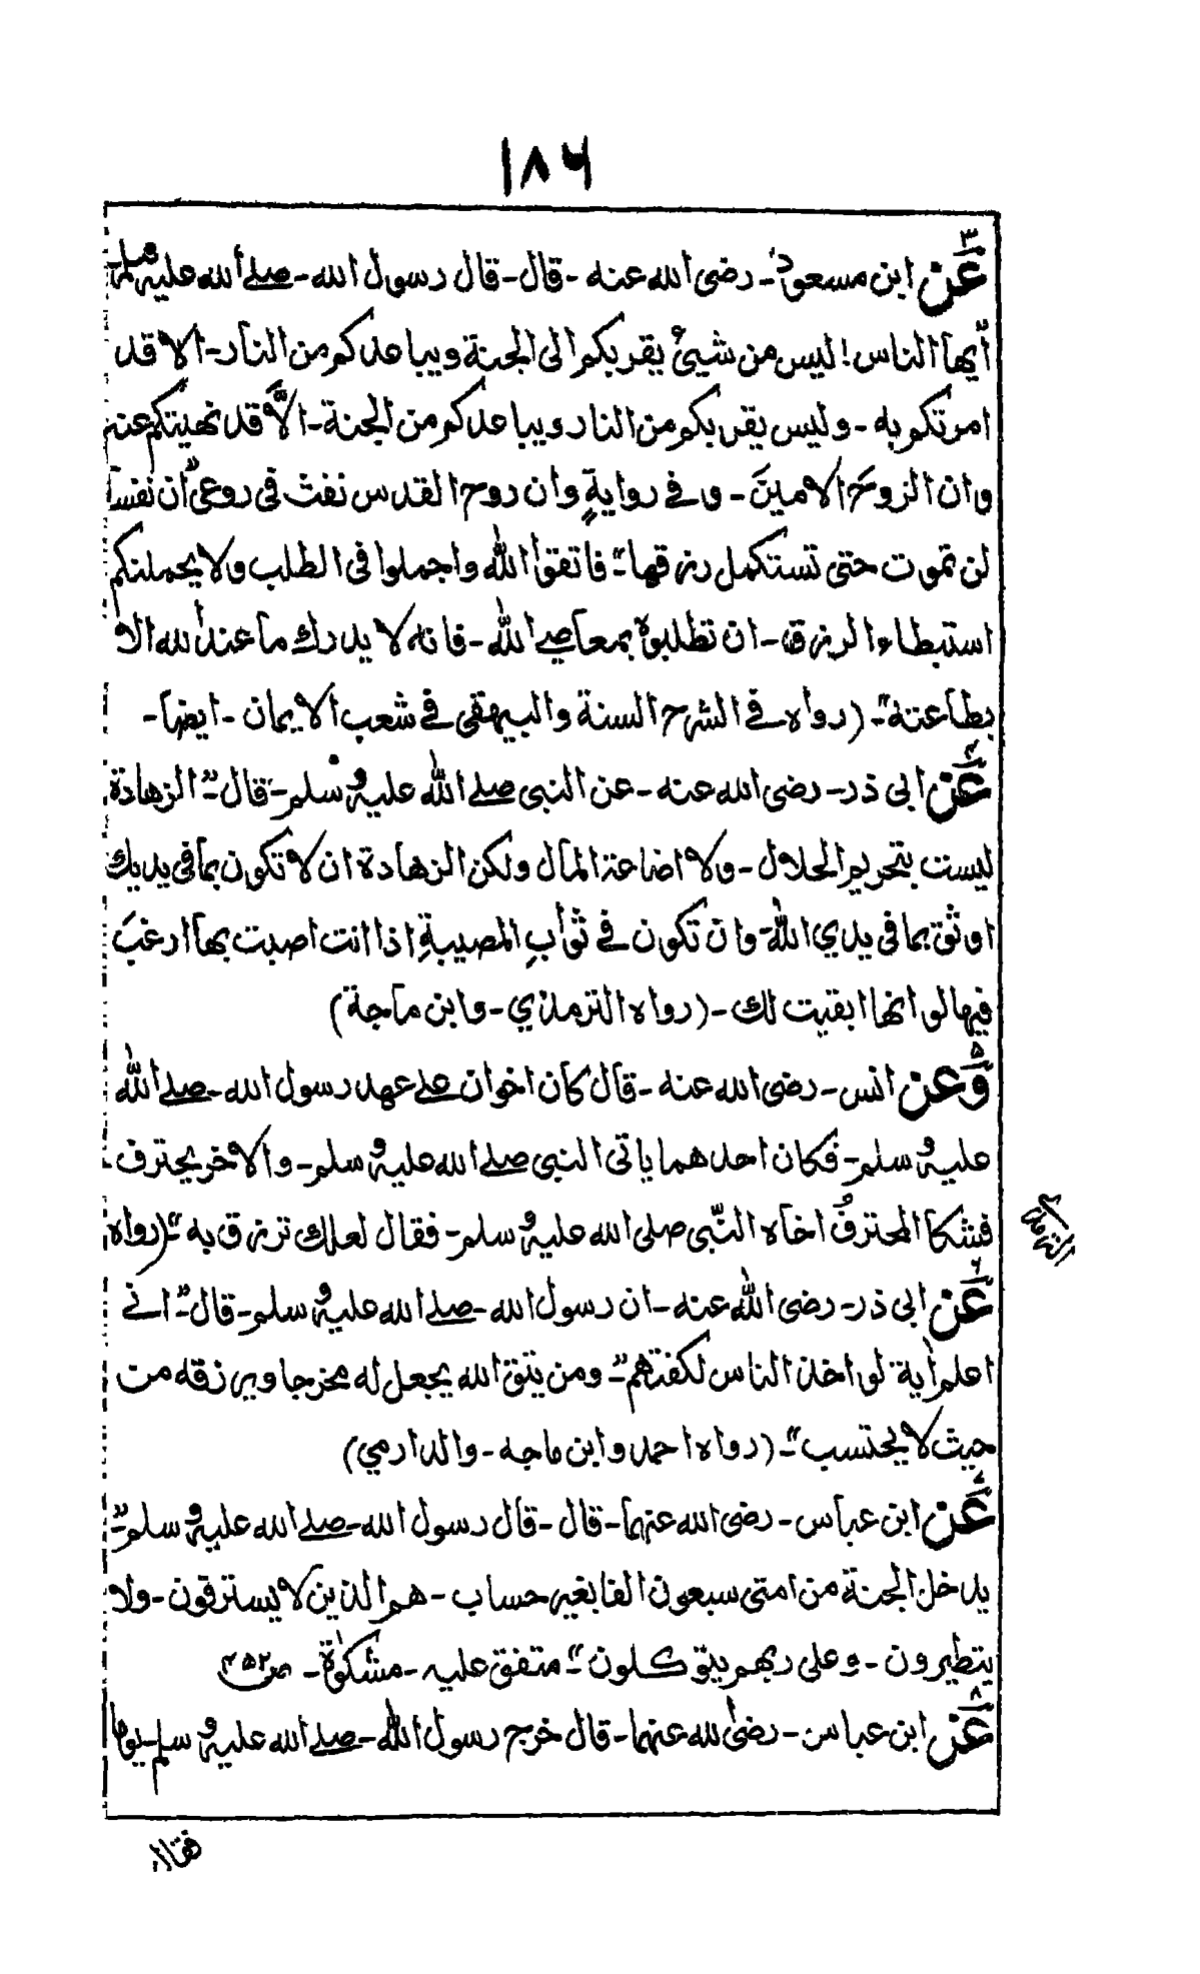 ۱۸۶
۳
عَن ابن مسعودؓ - رضی الله عنه - قال - قال رسول الله - صلے الله علیه وسلم
اَیها الناس! لیس من شیئ یقربکم الی الجنة ویباعدکم من النار - الا قد
امرتکم به - ولیس یقربکم من النار ویباعدکم من الجنة - الَّا قد نهیتکم عنه
وان الروحَ الامینَ - وفے روایةٍ وان روح القدس نفث فی روعی ان نفسا
لن تموت حتی تستکمل رزقها" - فاتقوا الله واجملوا فی الطلب ولا یحملنکم
استبطاء الرزق - ان تطلبوه بمعاصے الله - فانه لا یدرك ما عند الله الا
بطاعته" - (رواه فے الشرح السنة والبیهقی فے شعب الایمان - ایضا -
۴
عَن ابی ذر - رضی الله عنه - عن النبی صلے الله علیه وسلم - قال - "الزهادة
لیست بتحریم الحلال - ولا اضاعة المال ولکن الزهادة ان لا تکون بما فی یدیك
اوثق بما فی یدي الله - وان تکون فے ثوابِ المصیبةِ اذا انت اصبت بها ارغبَ
فیها لو انها ابقیت لك - (رواه الترمذي - وابن ماجة)
۵
وَعن انس - رضی الله عنه - قال کان اخوان علے عهد رسول الله - صلے الله
علیه وسلم - فکان احدهما یاتی النبی صلے الله علیه وسلم - والاخر یحترف -
فشکا المحترفُ اخاه النّبی صلی الله علیه وسلم - فقال لعلك ترزق به" - (رواه
الترمذی
۶
عَن ابی ذر - رضی الله عنه - ان رسول الله - صلے الله علیه وسلم - قال - "انے
اعلم اٰیة لو اخذ الناس لکفتهم" - ومن یتق الله یجعل له مخرجا ویرزقه من
حیث لا یحتسب" - (رواه احمد وابن ماجه - والدارمي)
۷
عَن ابن عباس - رضی الله عنهما - قال - قال رسول الله - صلے الله علیه وسلم - "
یدخل الجنة من امتی سبعون الفا بغیر حساب - هم الذین لا یسترقون - ولا
یتطیرون - وعلی ربهم یتوکلون" - متفق علیه - مشکوٰة - ص۴۵۲
۸
عَن ابن عباس - رضی الله عنهما - قال خرج رسول الله - صلے الله علیه وسلم - یوما
فقال